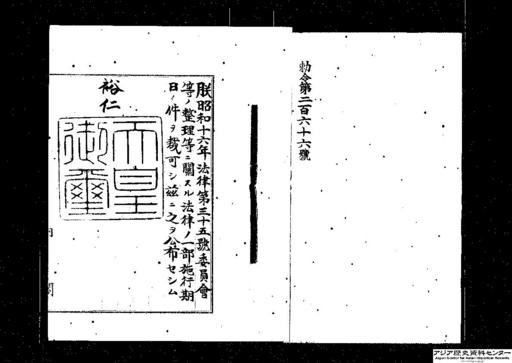 勅令第二百六十六號
朕昭和十六年法律第三十五號委員會
等ノ整理等ニ關スル法律ノ一部施行期
日ノ件ヲ裁可シ茲ニ之ヲ公布セシム
裕仁
天皇
御璽
アジア歴史資料センター
Japan Center for Asian Historical Records